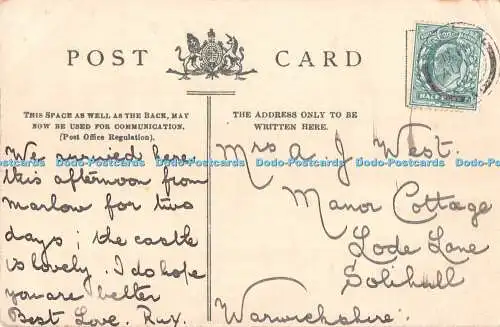 POST CARD
THIS SPACE AS WELL AS THE BACK, MAY
NOW BE USED FOR COMMUNICATION.
(Post Office Regulation).
THE ADDRESS ONLY TO BE
WRITTEN HERE.
We arrived here
this afternoon from
Marlow for two
days; the castle
is lovely. I do hope
you are better
Best Love.
Mrs A J West.
Manor Cottage
Lode Lane
Solihull
Warwickshire.
Dodo-Postcards Dodo-Postcards Dodo-Postcards Dodo-Postcards Dodo-Postcards